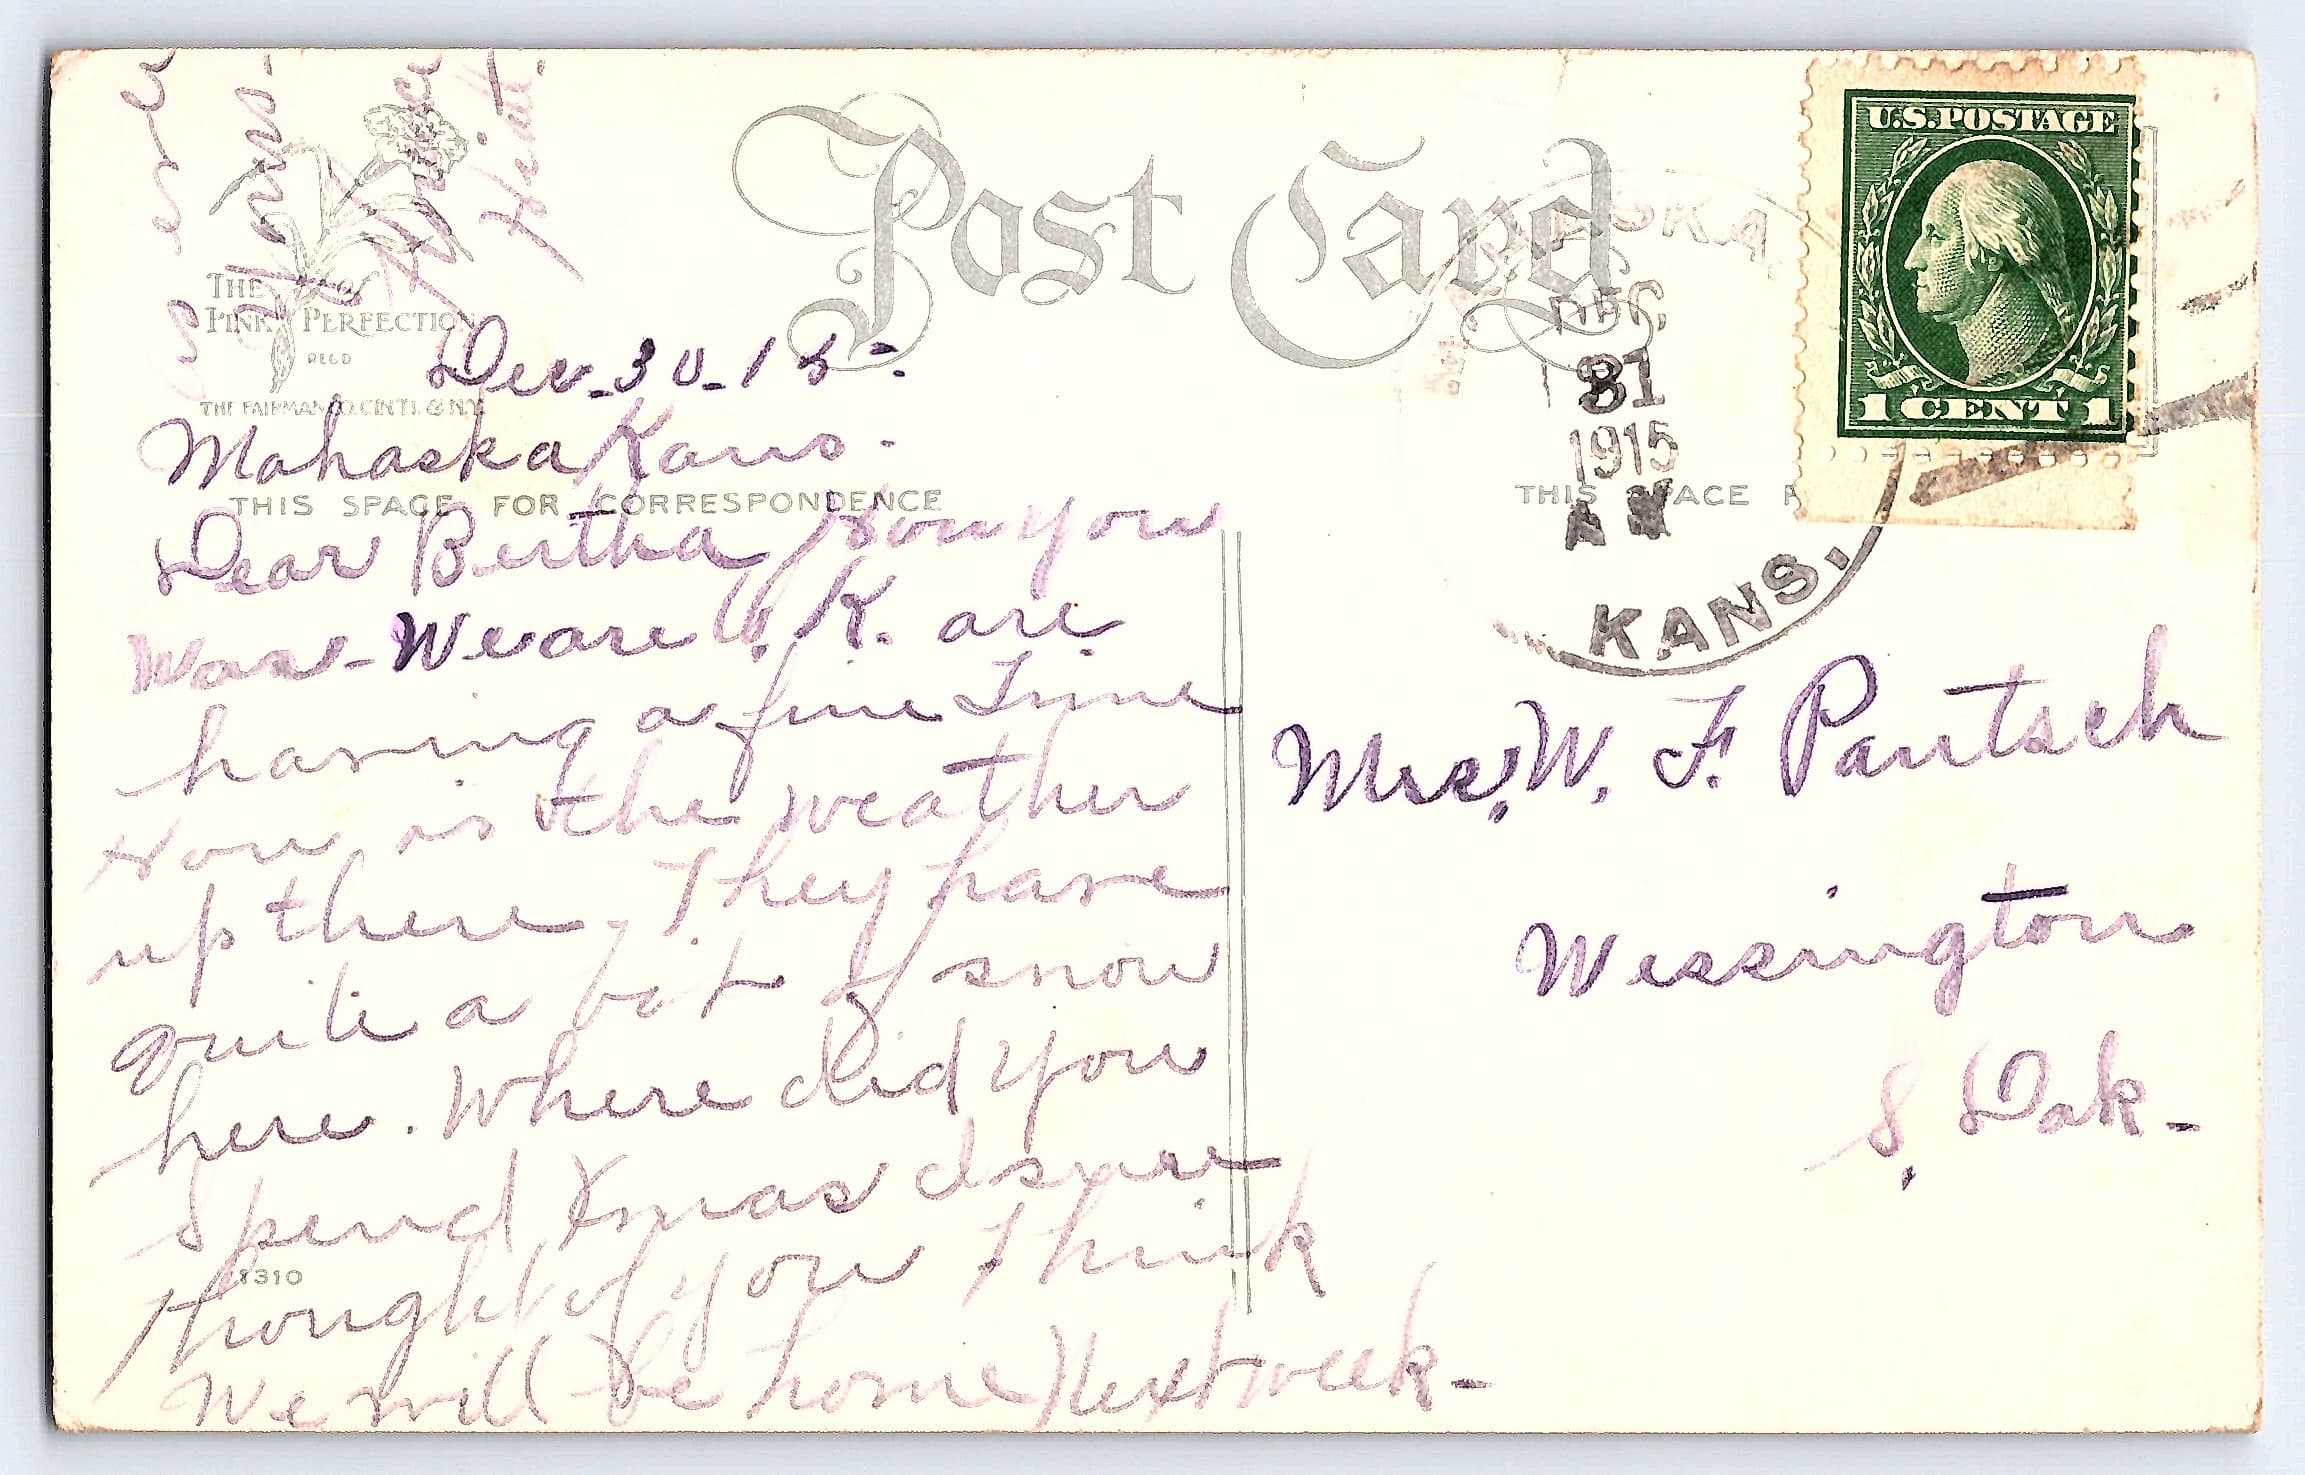 Post Card
U.S. POSTAGE
1 CENT 1
THE PINK OF PERFECTION
REGD
THE FAIRMAN CO. CIN'TI. & N.Y.
DEC
31
1915
AM
KANS.
THIS SPACE FOR CORRESPONDENCE
THIS SPACE F
Dec. 30 - 15 -
Mahaska Kans.
Dear Bertha, How you
was - We are O. K. are
having a fine Time
How is the weather
up there. They have
quite a bit of snow
here. Where did you
Spend Xmas I sure
thought of you I think
We will be home Next week -
as ever
Mrs.
Heidt.
1310
Mrs. W. F. Pautsch
Wessington
S. Dak -